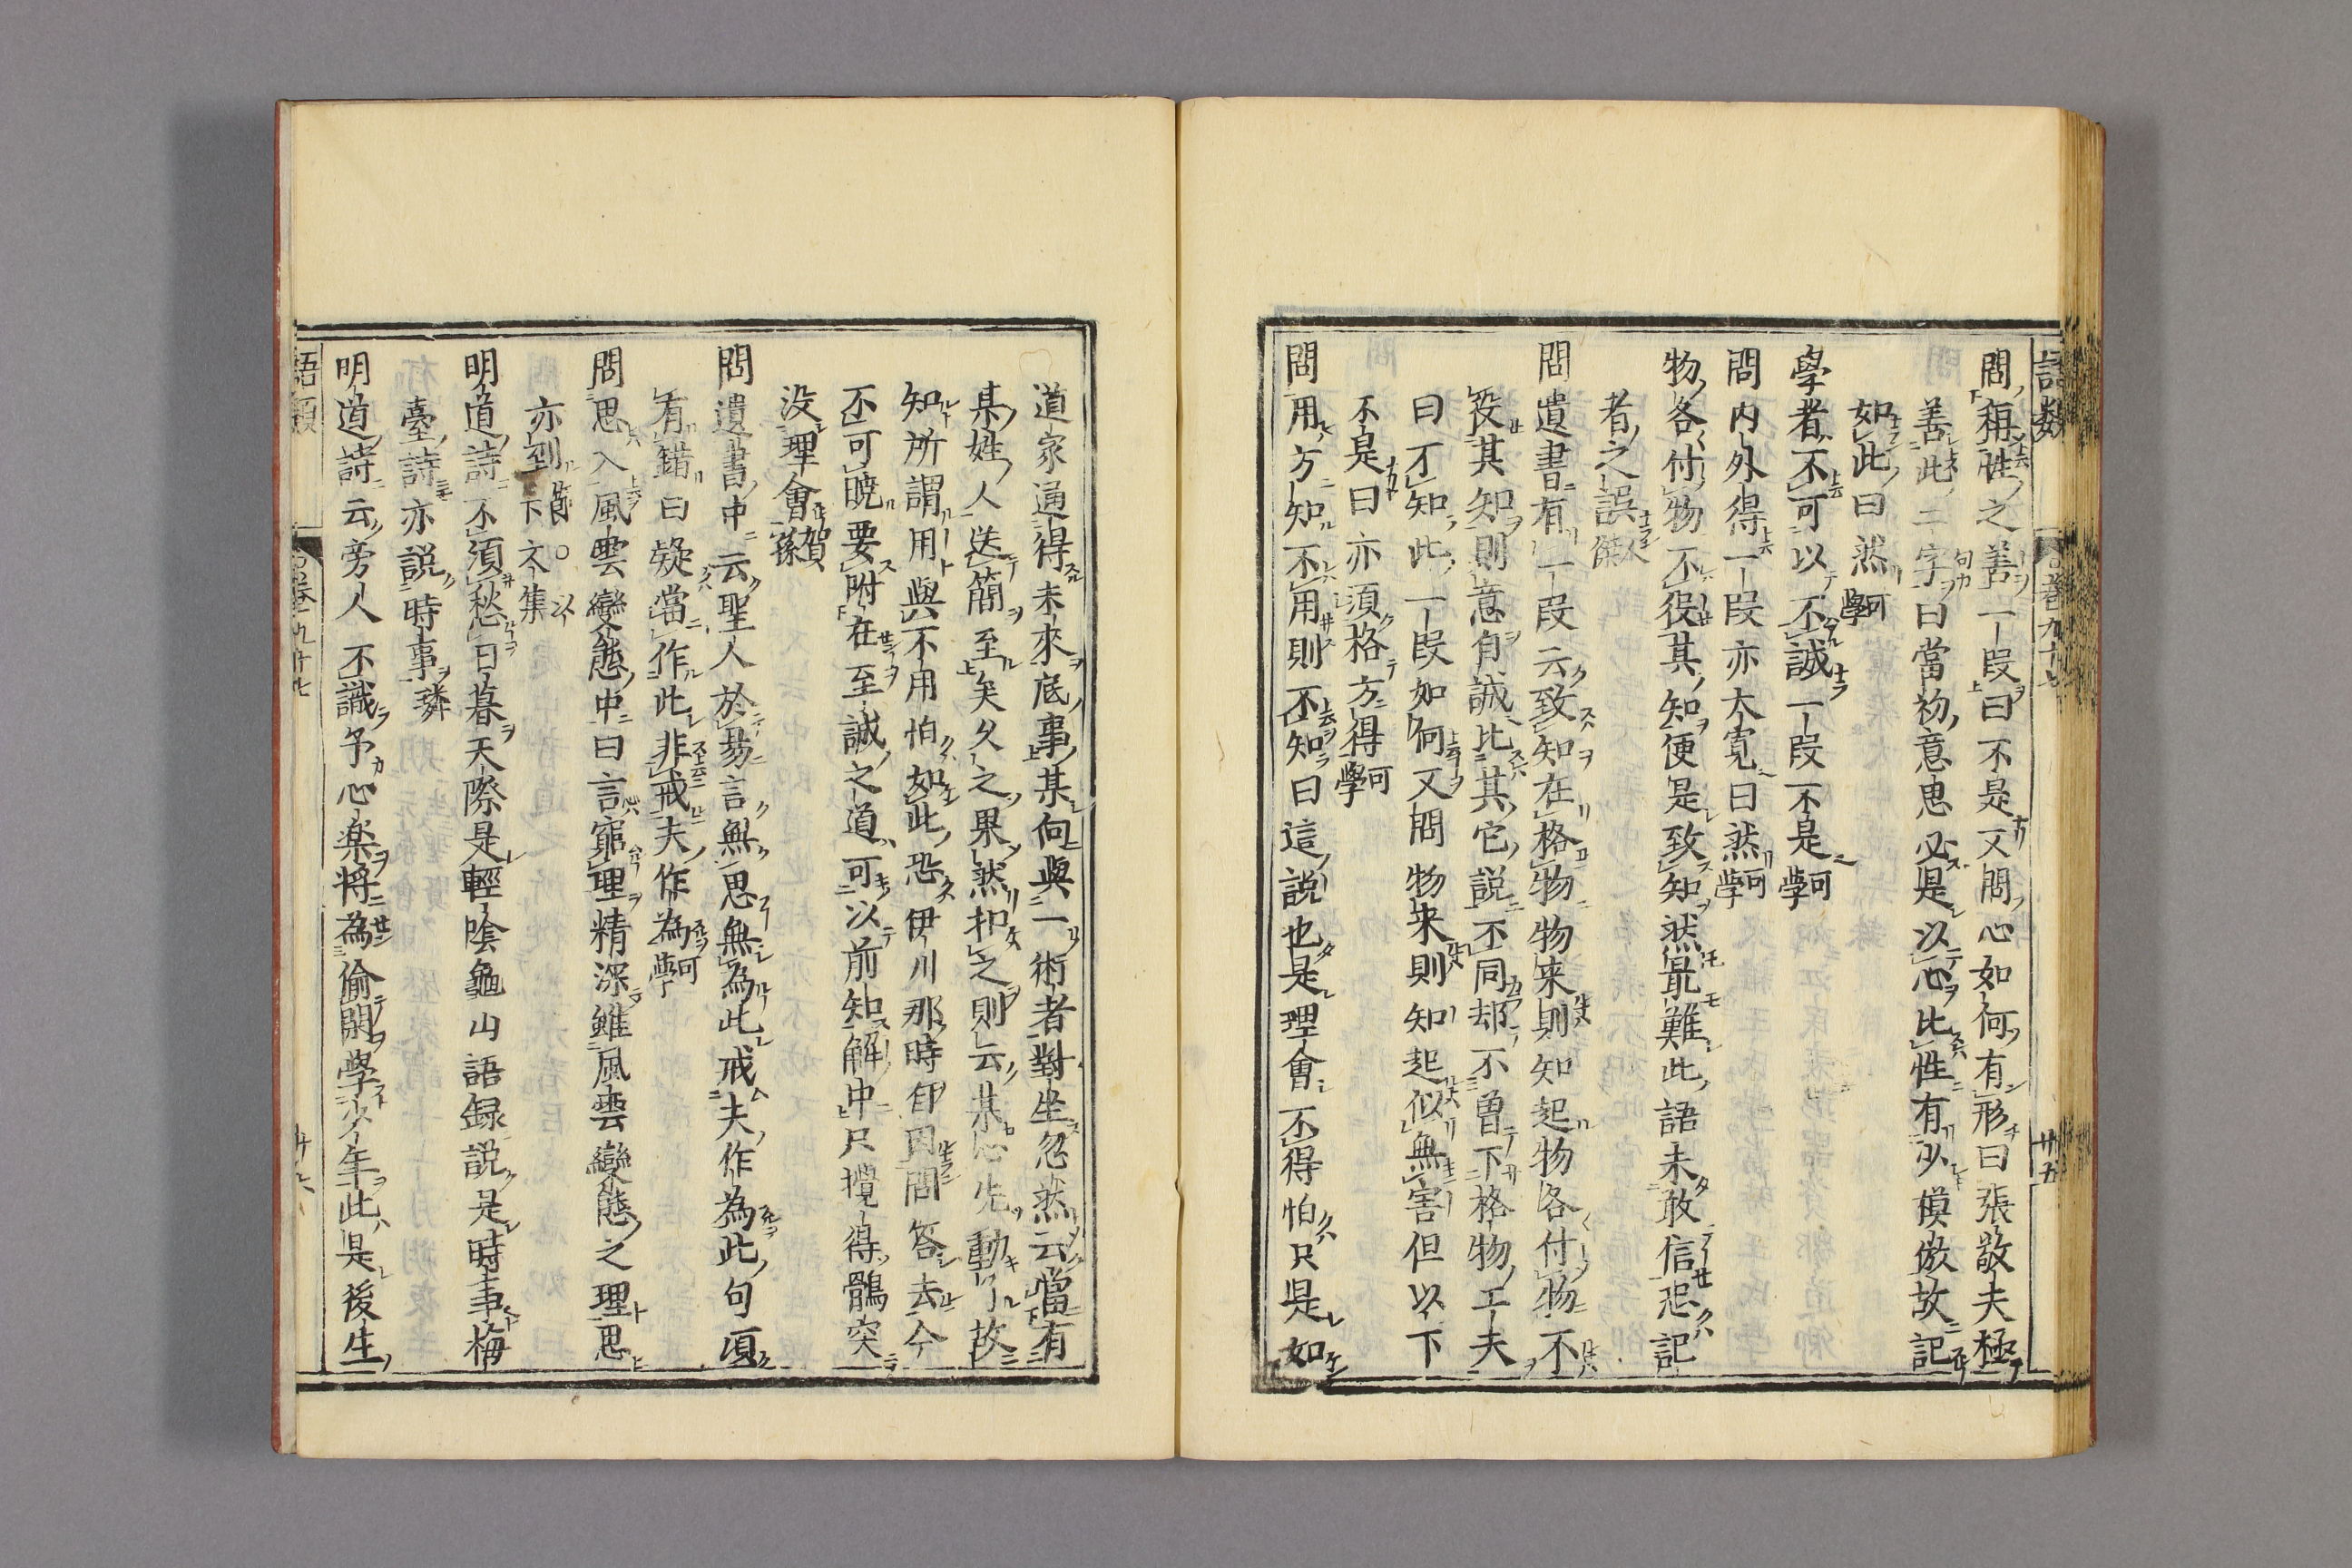 語類
卷九十七
廿五
問稱性之善一段曰不是又問心如何有形曰張敬夫極
善此二字曰當初意思必是以心比性有少模倣故記
如此曰然可學
學者不可以不誠一段不是可學
問内外得一段亦大寬曰然可學
物各付物不役其知便是致知然最難此語未敢信恐記
者之誤人傑
問遺書有一段云致知在格物物来則知起物各付物不
役其知則意自誠比其它説不同却不曽下格物工夫
曰不知此一段如何又問物来則知起似無害但以下
不是曰亦須格方得可學
問用方知不用則不知曰這説也是理會不得怕只是如
道家通得未來底事某向與一術者對坐忽然云當有
某姓人送簡至矣久之果然扣之則云某心先動了故
知所謂用與不用怕如此恐伊川那時自因問答去今
不可曉要附在至誠之道可以前知解中只攙得鶻突
没理會賀孫
問遺書中云聖人於易言無思無為此戒夫作為此句須
有錯曰疑當作此非戒夫作為可學
問思入風雲變態中曰言窮理精深雖風雲變態之理思
亦到節下文集
明道詩不須愁日暮天際是輕陰龜山語録説是時事梅
臺詩亦説時事璘
明道詩云旁人不識予心楽将為偷閑學少年此是後生
語類
卷九十七
廿六